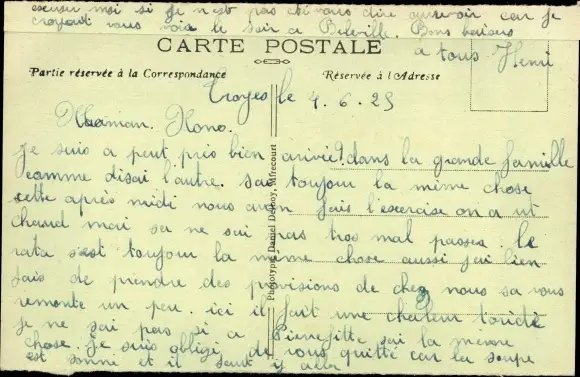 excuser moi si je n'est pas été vous dire aurevoir car je
croyait vous voir le soir a Bleville. Bons baisers
a tous Henri
CARTE POSTALE
Partie réservée à la Correspondance
Réservée à l'Adresse
Troyes le 4.6.25
Maman. Nono.
je suis a peut près bien arrivé dans la grande famille
comme disai l'autre. sai toujour la même chose
cette après midi nous avon fais l'exercise on a ut
chaud mai sa ne sai pas tros mal passer. le
rata s'est toujour la même chose aussi j'ai bien
fais de prendre des provisions de chez nous sa vous
remonte un peu. ici il fait une chaleur toride
je ne sai pas si a Pierrefitte sai la meme
chose. je suis obligé de vous quitté car la soupe
est sonné et il faut y aller
Phototypie Daniel Delboy, Mirecourt